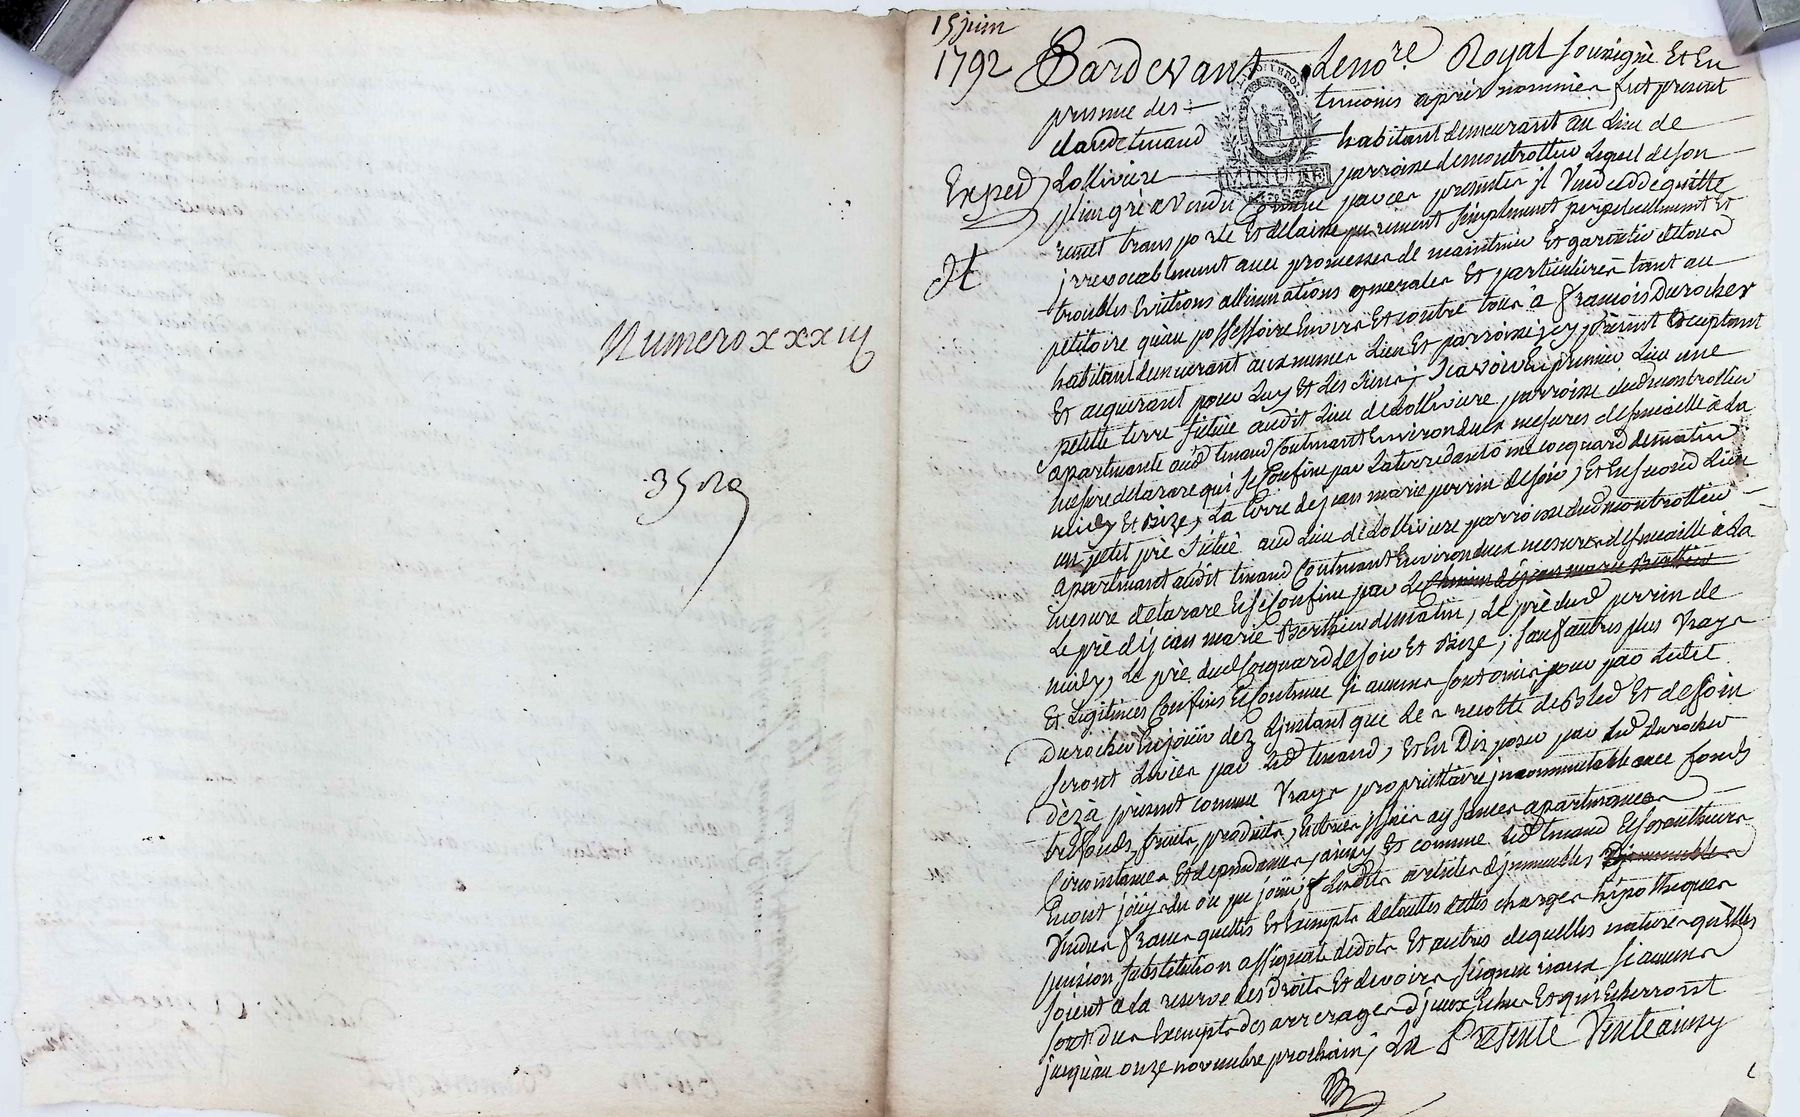 Numero xxxiij
15 juin
1792
Exped
Pardevant Le no.re Royal soussigné Et En
presence des temoins après nommés fut present
claude tinand habitant demeurant au Lieu de
Lollivière parroisse de montrottier Lequel de son
plein gré a vendu comme par ces presentes il Vend cedde quitte
remet transporte Et delaisse purement simplement perpetuellement et
jrrevocablement avec promesses de maintenir Et garentir de tous
troubles Evictions allienations generales Et particulières tant au
petitoire qu'au possessoire Envers Et contre tous à françois Durocher
habitant demeurant aux memes Lieu Et parroisse jcy présent acceptant
Et acquerant pour Luy Et Les siens; sçavoir En premier Lieu une
petite terre scituée audit Lieu de Lollivière parroisse dud montrottier
apartenante aud tinand Contenant Environ deux mesures de semaille à La
mesure de tarare qui se Confine par La terre d'antoine cocquard de matin
Et Bize, La terre de jean marie perrin de soir, Et En second Lieu
un petit pré scitué aud Lieu de Lollivière parroisse dud montrottier
apartenant audit tinand Contenant Environ deux mesures de semaille à La
mesure de tarare Et se Confine par Le chemin de jean marie Berthier
Le pré de jean marie Berthier de matin, Le pré dud perrin de
midy, Le pré dud Cocquard de soir Et Bize; sauf autres plus Vrays
Et Legitimes Confins Et Contenue si aucuns sont omis pour par Ledit
Durocher En joüir dez L'jnstant que Les recolte de Bled Et de foin
seront Levées par Led tinand, Et En Disposer par Led Durocher
dèz à présent comme Vrays proprietaire jncommutable avec fonds
trèfonds, fruits, produits, Entrées, issües aysances apartenances
Circonstances Et dependances, ainsy Et comme Led tinand Et ses autheurs
En ont joüy dû ou pu joüir Lesdits articles d'jmmeubles
Vendus francs quittes Et Exempts de touttes dettes charges hipothèques
pension substitution assignat de dots Et autres de quelles natures qu'Elles
soient à La reserve des droits Et devoirs seigneuriaux si aucuns
sont dus Exempts des arrerages d'jceux Echus Et qui Echerront
jusqu'au onze novembre prochain; La Présente Vente ainsy